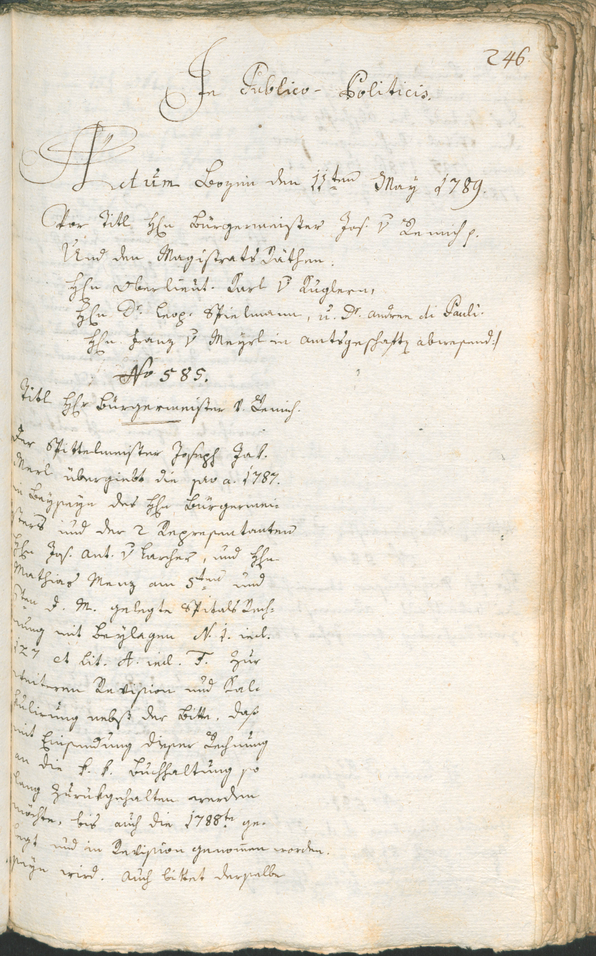 246
In Publico-Politicis.
Actum Bozen den 11ten May 1789.
Vor Titl. Hn Bürgermeister Jos. v Remich p.
Und den Magistrats Räthen.
Hn Oberlieut. Karl v Kuglern,
Hn Dr. Leop. Spielmann, u. Dr. Andree di Pauli.
Hn Franz v Meyrl in Amtsgeschäft abwesend:/
No 585.
Titl. Hr Bürgermeister v. Remich.
Der Spittelmeister Joseph Jak.
Merl übergiebt die pro a. 1787.
in Beyseyn des Hn Bürgermei-
sters und der 2 Representanten
Hn Jos. Ant. v Larcher, und Hn
Mathias Menz am 5ten und
ten d. M. gelegte Spitals Rech-
nung mit Beylagen N. 1. incl.
127 et lit. A. incl. F. zur
weiteren Revision und Kal-
kulirung nebst der Bitte, daß
mit Einsendung dieser Rechnung
an die k. k. Buchhaltung so
lang zurükgehalten werden
möchte, bis auch die 1788te ge-
legt und in Revision genommen worden.
seyn wird. Auch bittet derselbe